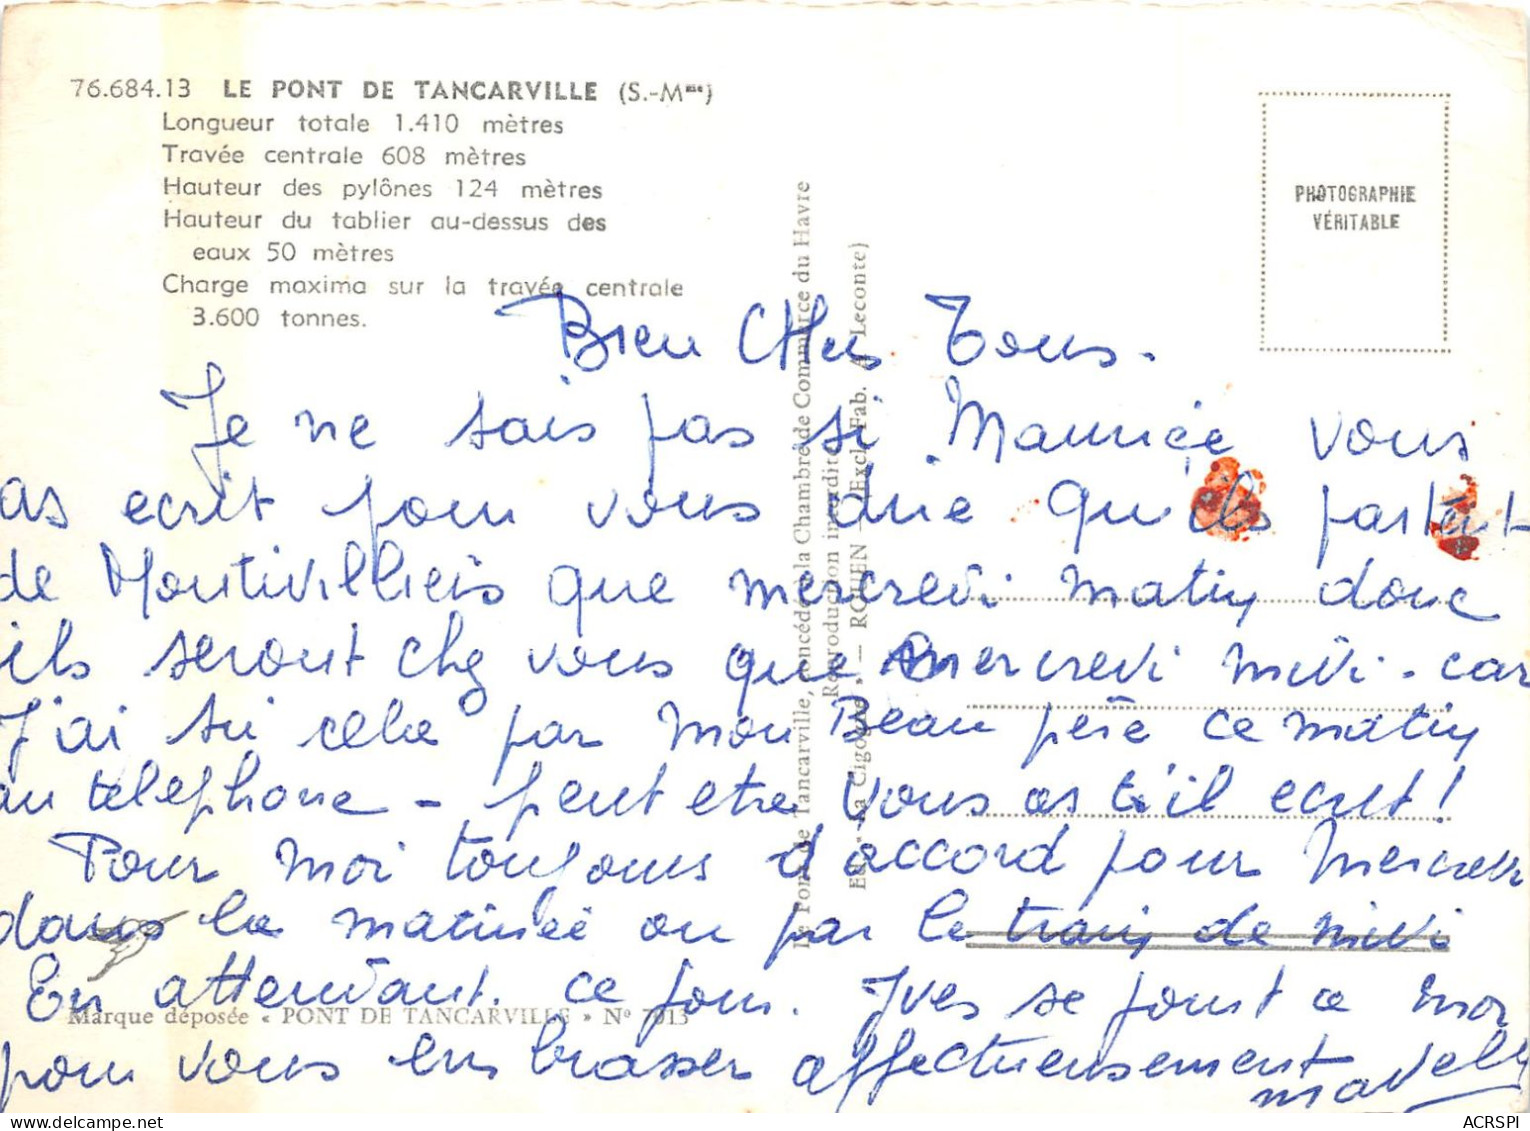 76.684.13 LE PONT DE TANCARVILLE (S.-Mme)
Longueur totale 1.410 mètres
Travée centrale 608 mètres
Hauteur des pylônes 124 mètres
Hauteur du tablier au-dessus des
eaux 50 mètres
Charge maxima sur la travée centrale
3.600 tonnes.
PHOTOGRAPHIE
VÉRITABLE
Bien Chers Tous.
Je ne sais pas si Maurice vous
as ecrit pour vous dire qu'ils partait
de Montivilliers que mercredi matin donc
ils seront chez vous que mercredi midi - car
J'ai su cela par mon Beau père ce matin
au telephone - peut etre vous as t'il ecrit !
Pour moi toujours d'accord pour Mercredi
dans la matinée ou par le train de midi
En attendant ce jour. Yves se joint a moi
pour vous embrasser affectueusement
Le Pont de Tancarville, concédé à la Chambre de Commerce du Havre
Reproduction interdite
Ed. "La Cigogne" — ROUEN — (Excl. Fab. A. Leconte)
Marque déposée « PONT DE TANCARVILLE » N° 7013
ACRSPI